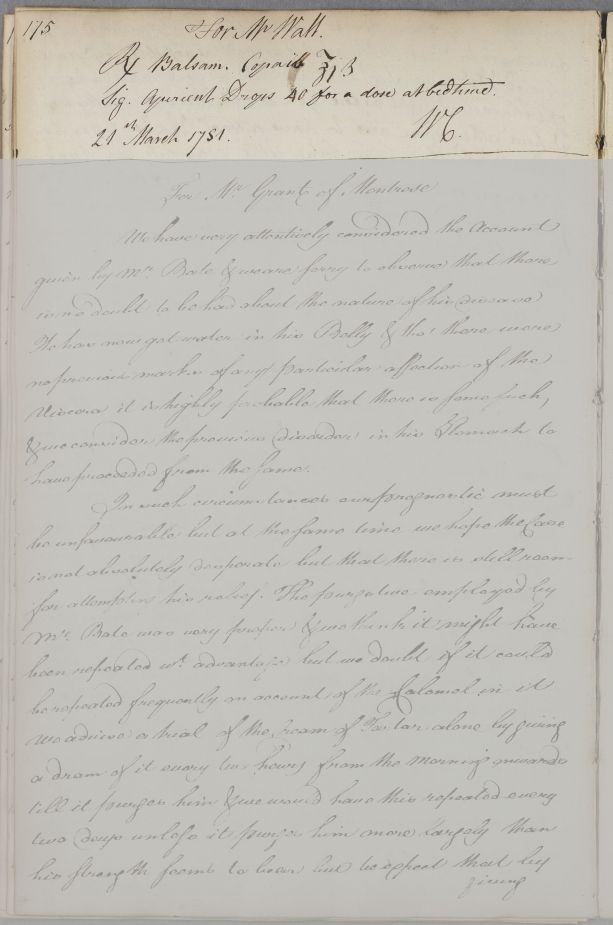 175
For Mr Wall.
℞ Balsam. Copaib ℥iß
Sig. Aperient Drops 40 for a dose at bedtime.
21st March 1781.
WC.
For Mr. Grant of Montrose
We have very attentively considered the Account
given by Mr. Bate & we are sorry to observe that there
is no doubt to be had about the nature of his disease
He has now got water in his Belly & tho' there were
no previous marks of any particular affection of the
Viscera it is highly probable that there is some such,
& we consider the previous disorders in his Stomach to
have proceeded from the same.
In such circumstances our prognostic must
be unfavourable but at the same time we hope the Case
is not absolutely desperate but that there is still room
for attempting his relief. The purgative employed by
Mr. Bate was very proper & we think it might have
been repeated wt. advantage but we doubt if it could
be repeated frequently on account of the Calomel in it
We advise a trial of the Cream of Tartar alone by giving
a dram of it every two hours from the morning onwards
till it purges him & we would have this repeated every
two days unless it purges him more largely than
his strength seems to bear but we expect that by
giving